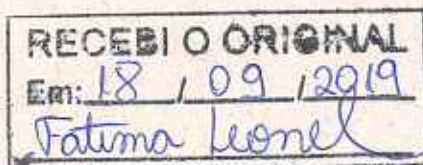 RECEBI O ORIGINAL
Em: 18 / 09 / 2019
Fatima Leonel